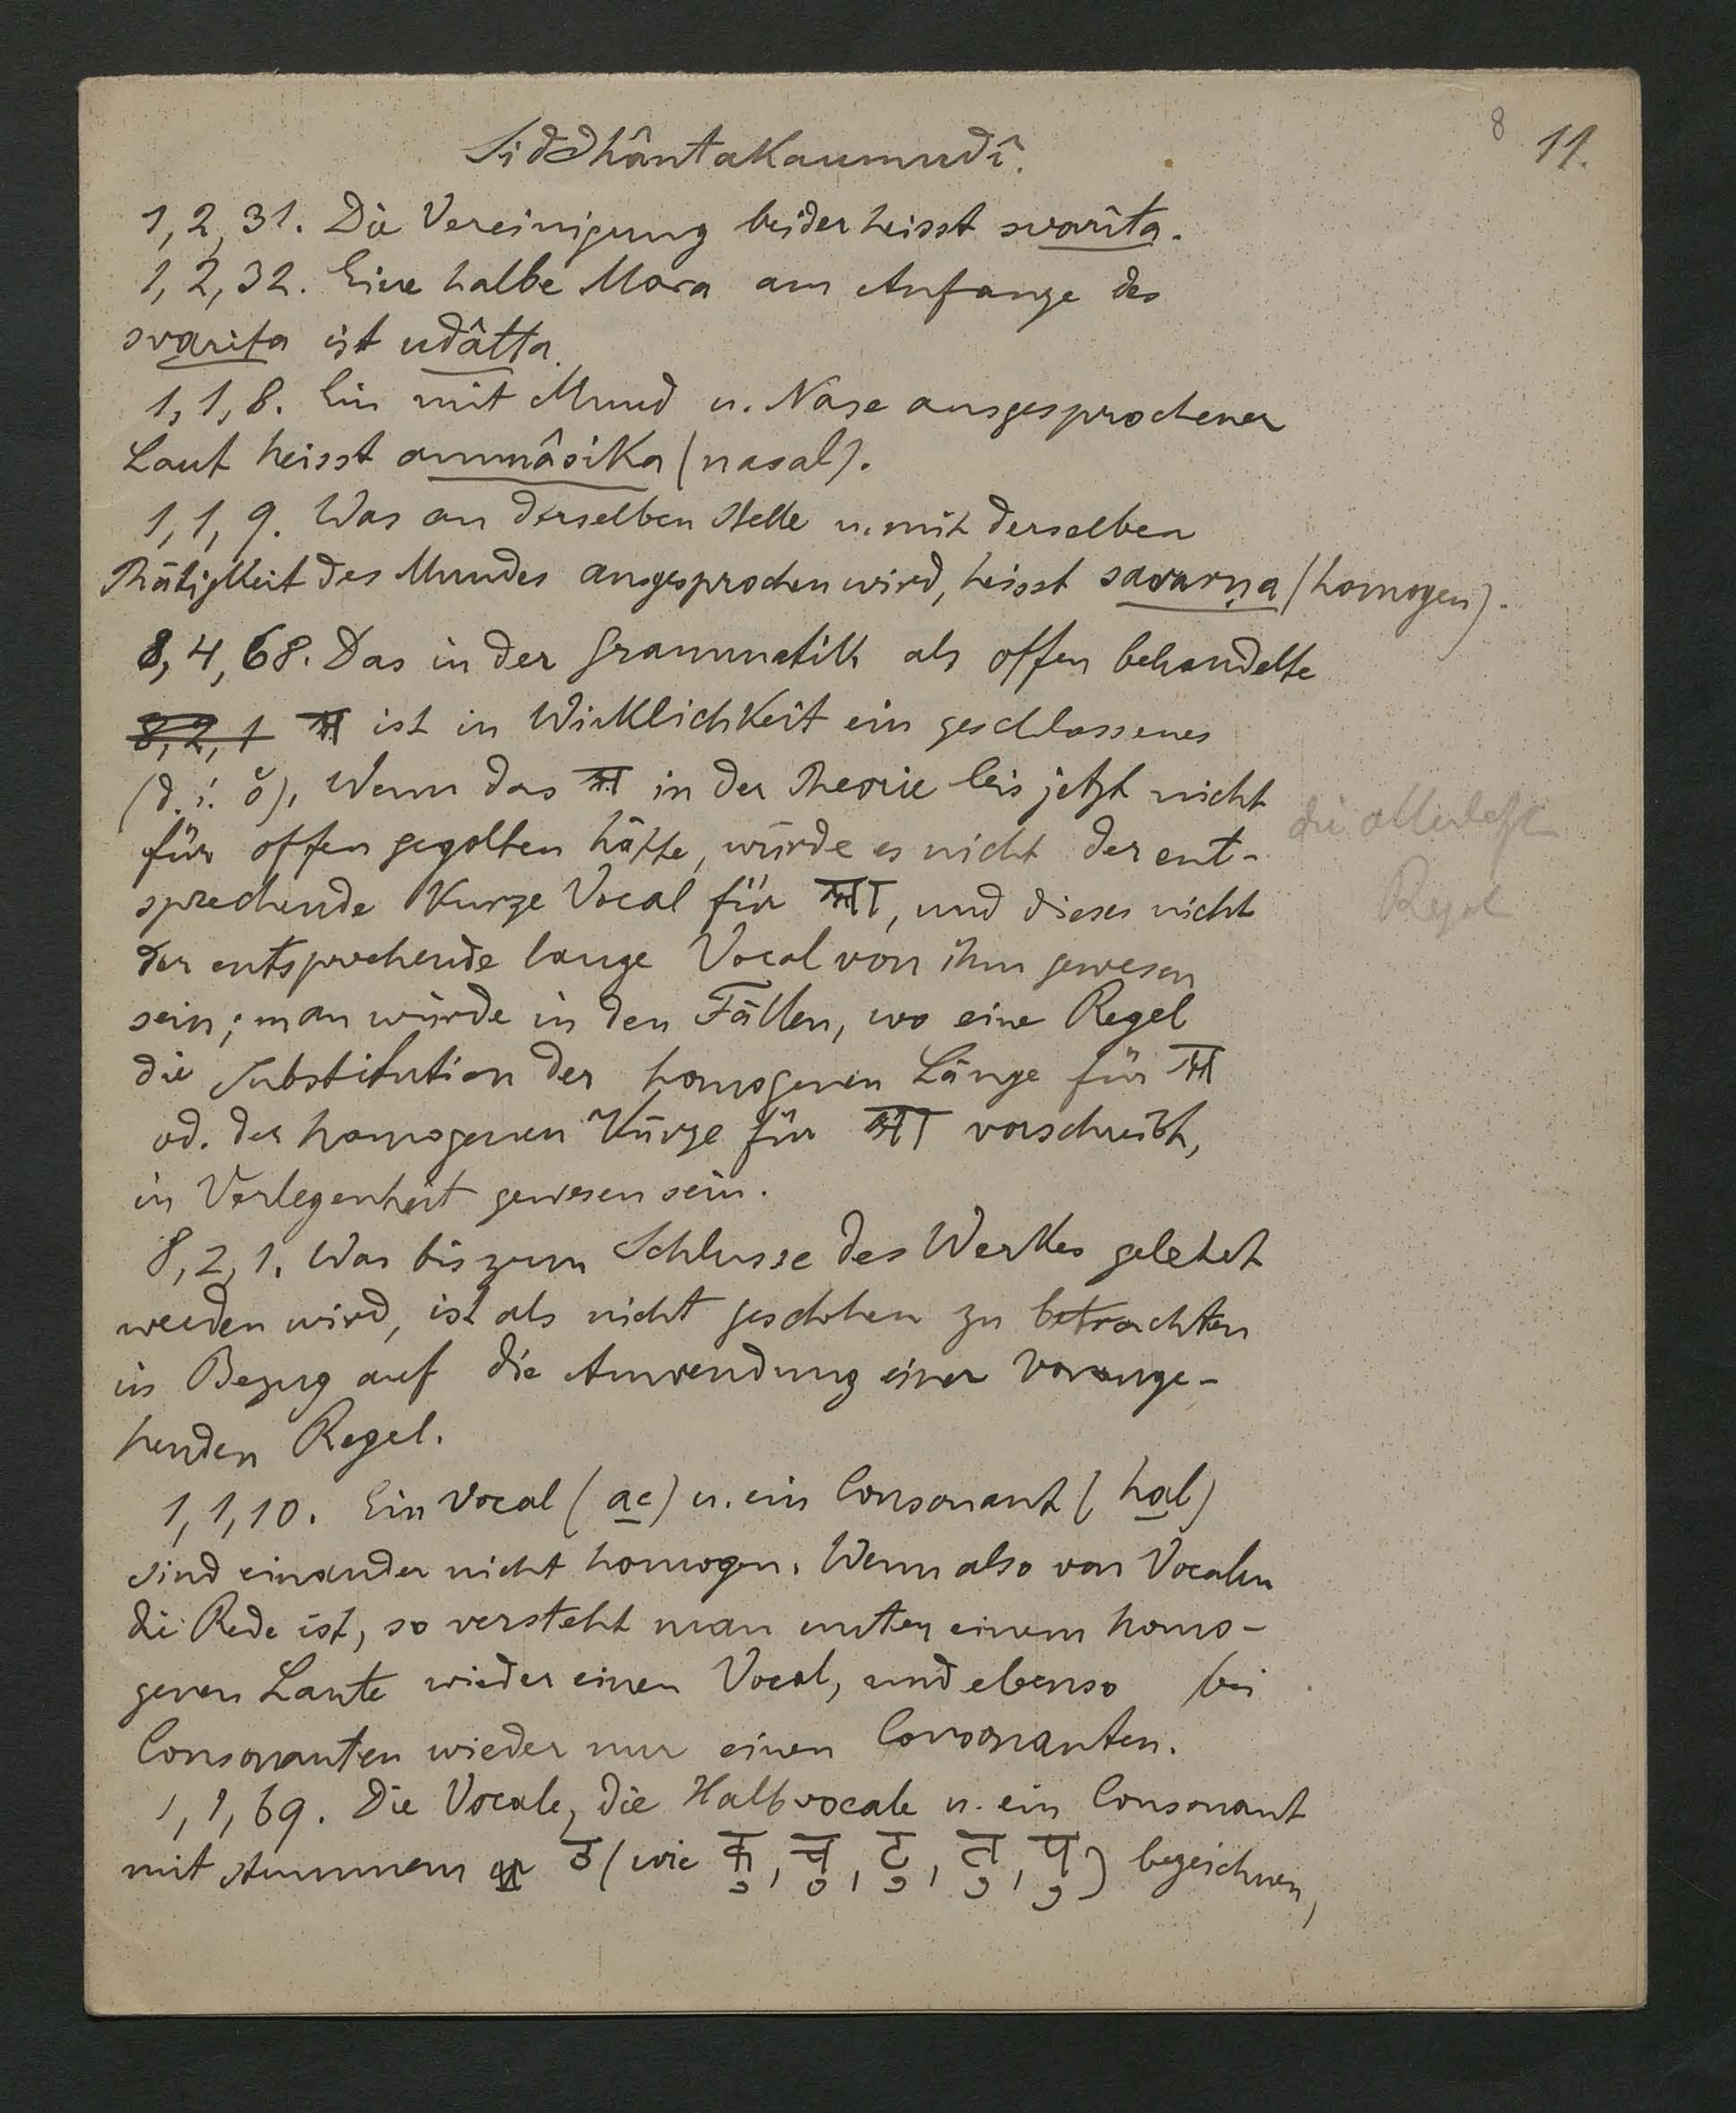 8 11.
Siddhântakaumudî.
1,2,31. Die Vereinigung beider heisst svarita.
1,2,32. Eine halbe Mora am Anfange des
svarita ist udâtta.
1,1,8. Ein mit Mund u. Nase ausgesprochener
Laut heisst anunâsika (nasal).
1,1,9. Was an derselben Stelle u. mit derselben
Thätigkeit des Mundes ausgesprochen wird, heisst savarṇa (homogen).
8,4,68. Das in der Grammatik als offen behandelte
8,2,1 अ ist in Wirklichkeit ein geschlossenes
(d. i. ŏ). Wenn das अ in der Theorie bis jetzt nicht
für offen gegolten hätte, würde es nicht der ent-
die allerletzte
sprechende kurze Vocal für आ, und dieses nicht
Regel
der entsprechende lange Vocal von ihm gewesen
sein; man würde in den Fällen, wo eine Regel
die Substitution der homogenen Länge für अ
od. der homogenen Kürze für आ vorschreibt,
in Verlegenheit gewesen sein.
8,2,1. Was bis zum Schlusse des Werkes gelehrt
werden wird, ist als nicht geschehen zu betrachten
in Bezug auf die Anwendung einer vorange-
henden Regel.
1,1,10. Ein Vocal (ac) u. ein Consonant (hal)
sind einander nicht homogen. Wenn also von Vocalen
die Rede ist, so versteht man unter einem homo-
genen Laute wieder einen Vocal, und ebenso bei
Consonanten wieder nur einen Consonanten.
1,1,69. Die Vocale, die Halbvocale u. ein Consonant
mit stummem उ (wie कु, चु, टु, तु, पु) bezeichnen,